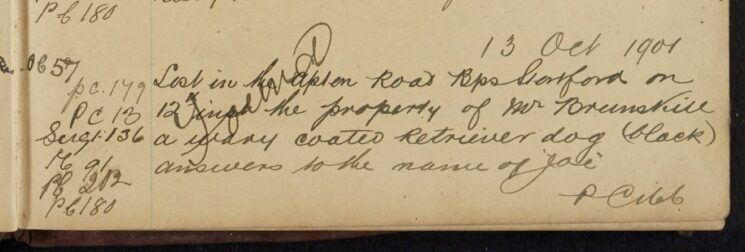 Pc 180
13 Oct 1901
657
pc. 179
Lost in the Apton Road Bps Stortford on
PC 13
12th inst the property of Mr Brunskill
Sergt. 136
a wavy coated Retriever dog (black)
Pc 91
answers to the name of Joe
Pc 212
Pc 180